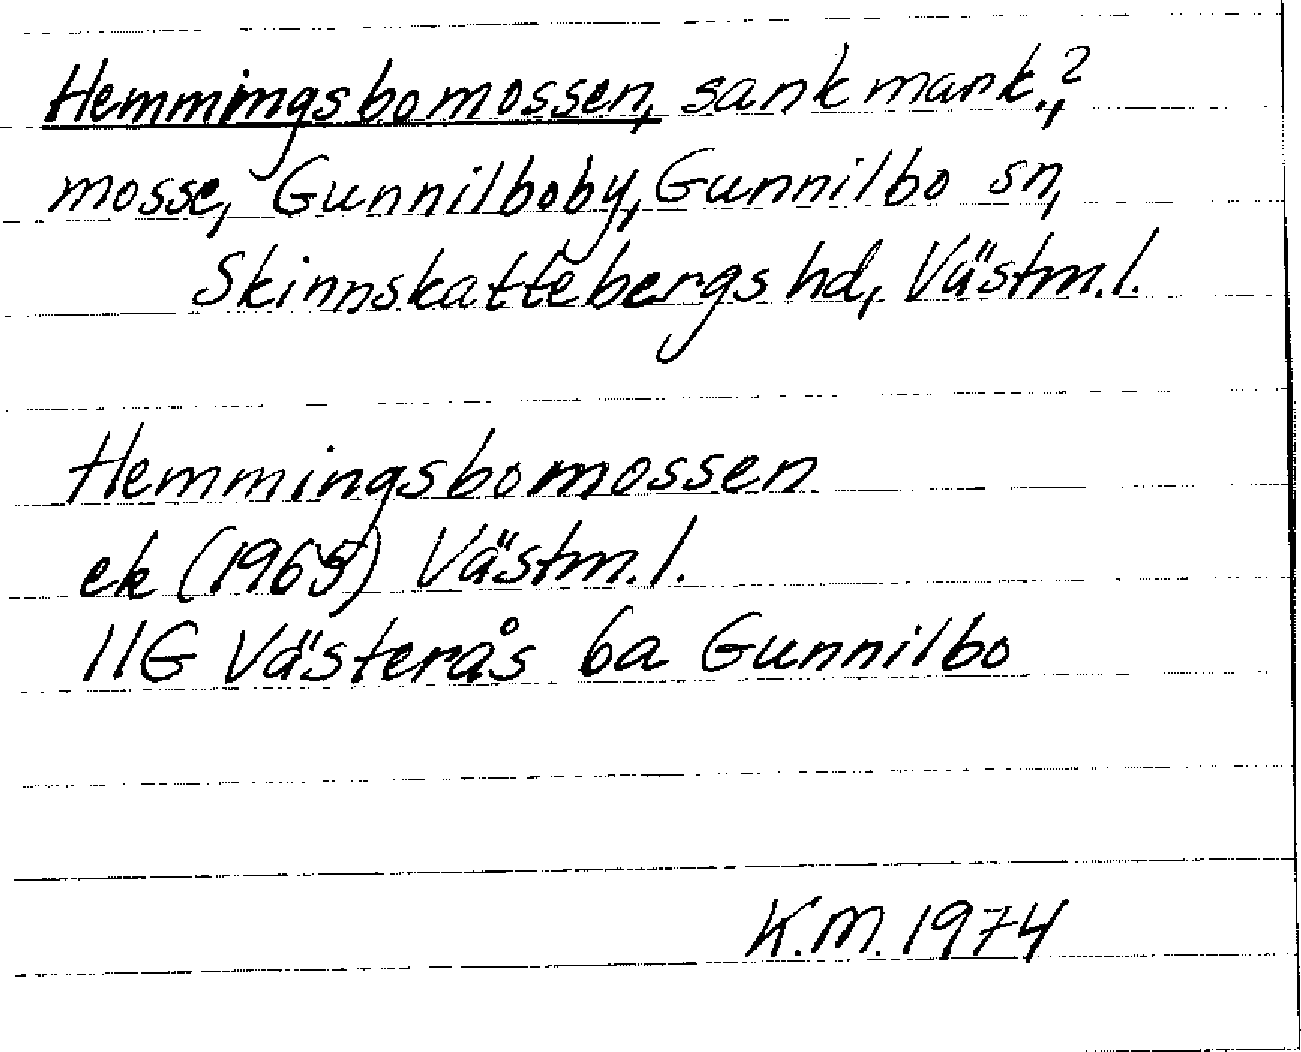 Hemmingsbomossen, sankmark.,?
mosse, Gunnilboby, Gunnilbo sn,
Skinnskattebergs hd, Västm.l.
Hemmingsbomossen
ek (1965) Västm.l.
11G Västerås 6a Gunnilbo
K.M. 1974